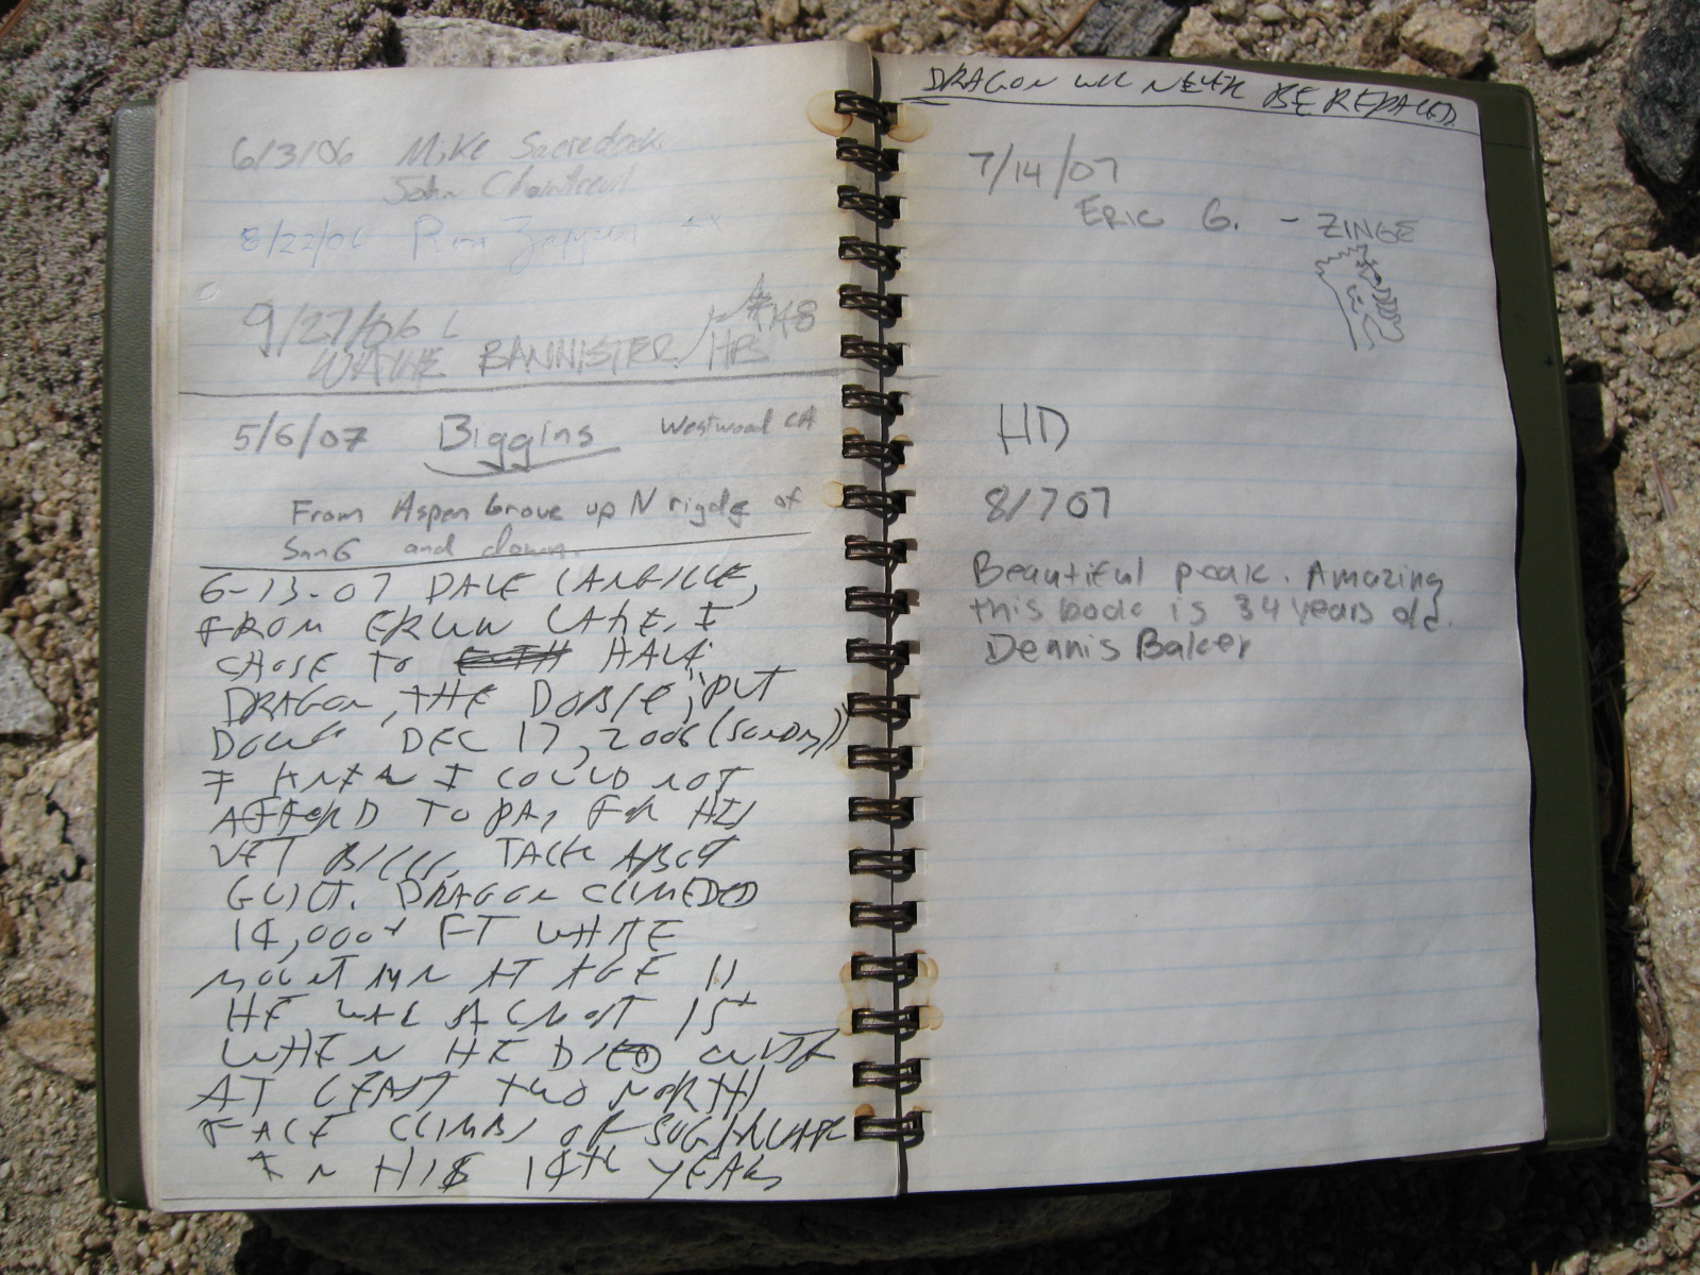 6/3/06 Mike
John
8/22/06 Ron
9/27/06
BANNISTER
5/6/07 Biggins Westwood CA
From Aspen Grove up N rigde of
and down.
6-13-07 DALE
FROM LAKE, I
CHOSE TO HAVE
DRAGON, THE DOBIE, "PUT
DOWN" DEC 17, 2006 (SUNDAY)
I KNEW I COULD NOT
AFFORD TO PAY FOR HIS
VET BILLS, TALK ABOUT
GUILT. DRAGON CLIMBED
14,000+ FT WHITE
MOUNTAIN AT AGE 11
HE WAS ALMOST 15
WHEN HE DIED WITH
AT LEAST TWO NORTH
FACE CLIMBS OF
IN HIS 14TH YEAR
DRAGON WILL NEVER BE REPLACED
7/14/07
ERIC G. - ZINGE
HD
8/707
Beautiful peak. Amazing
this book is 34 years old.
Dennis Baker